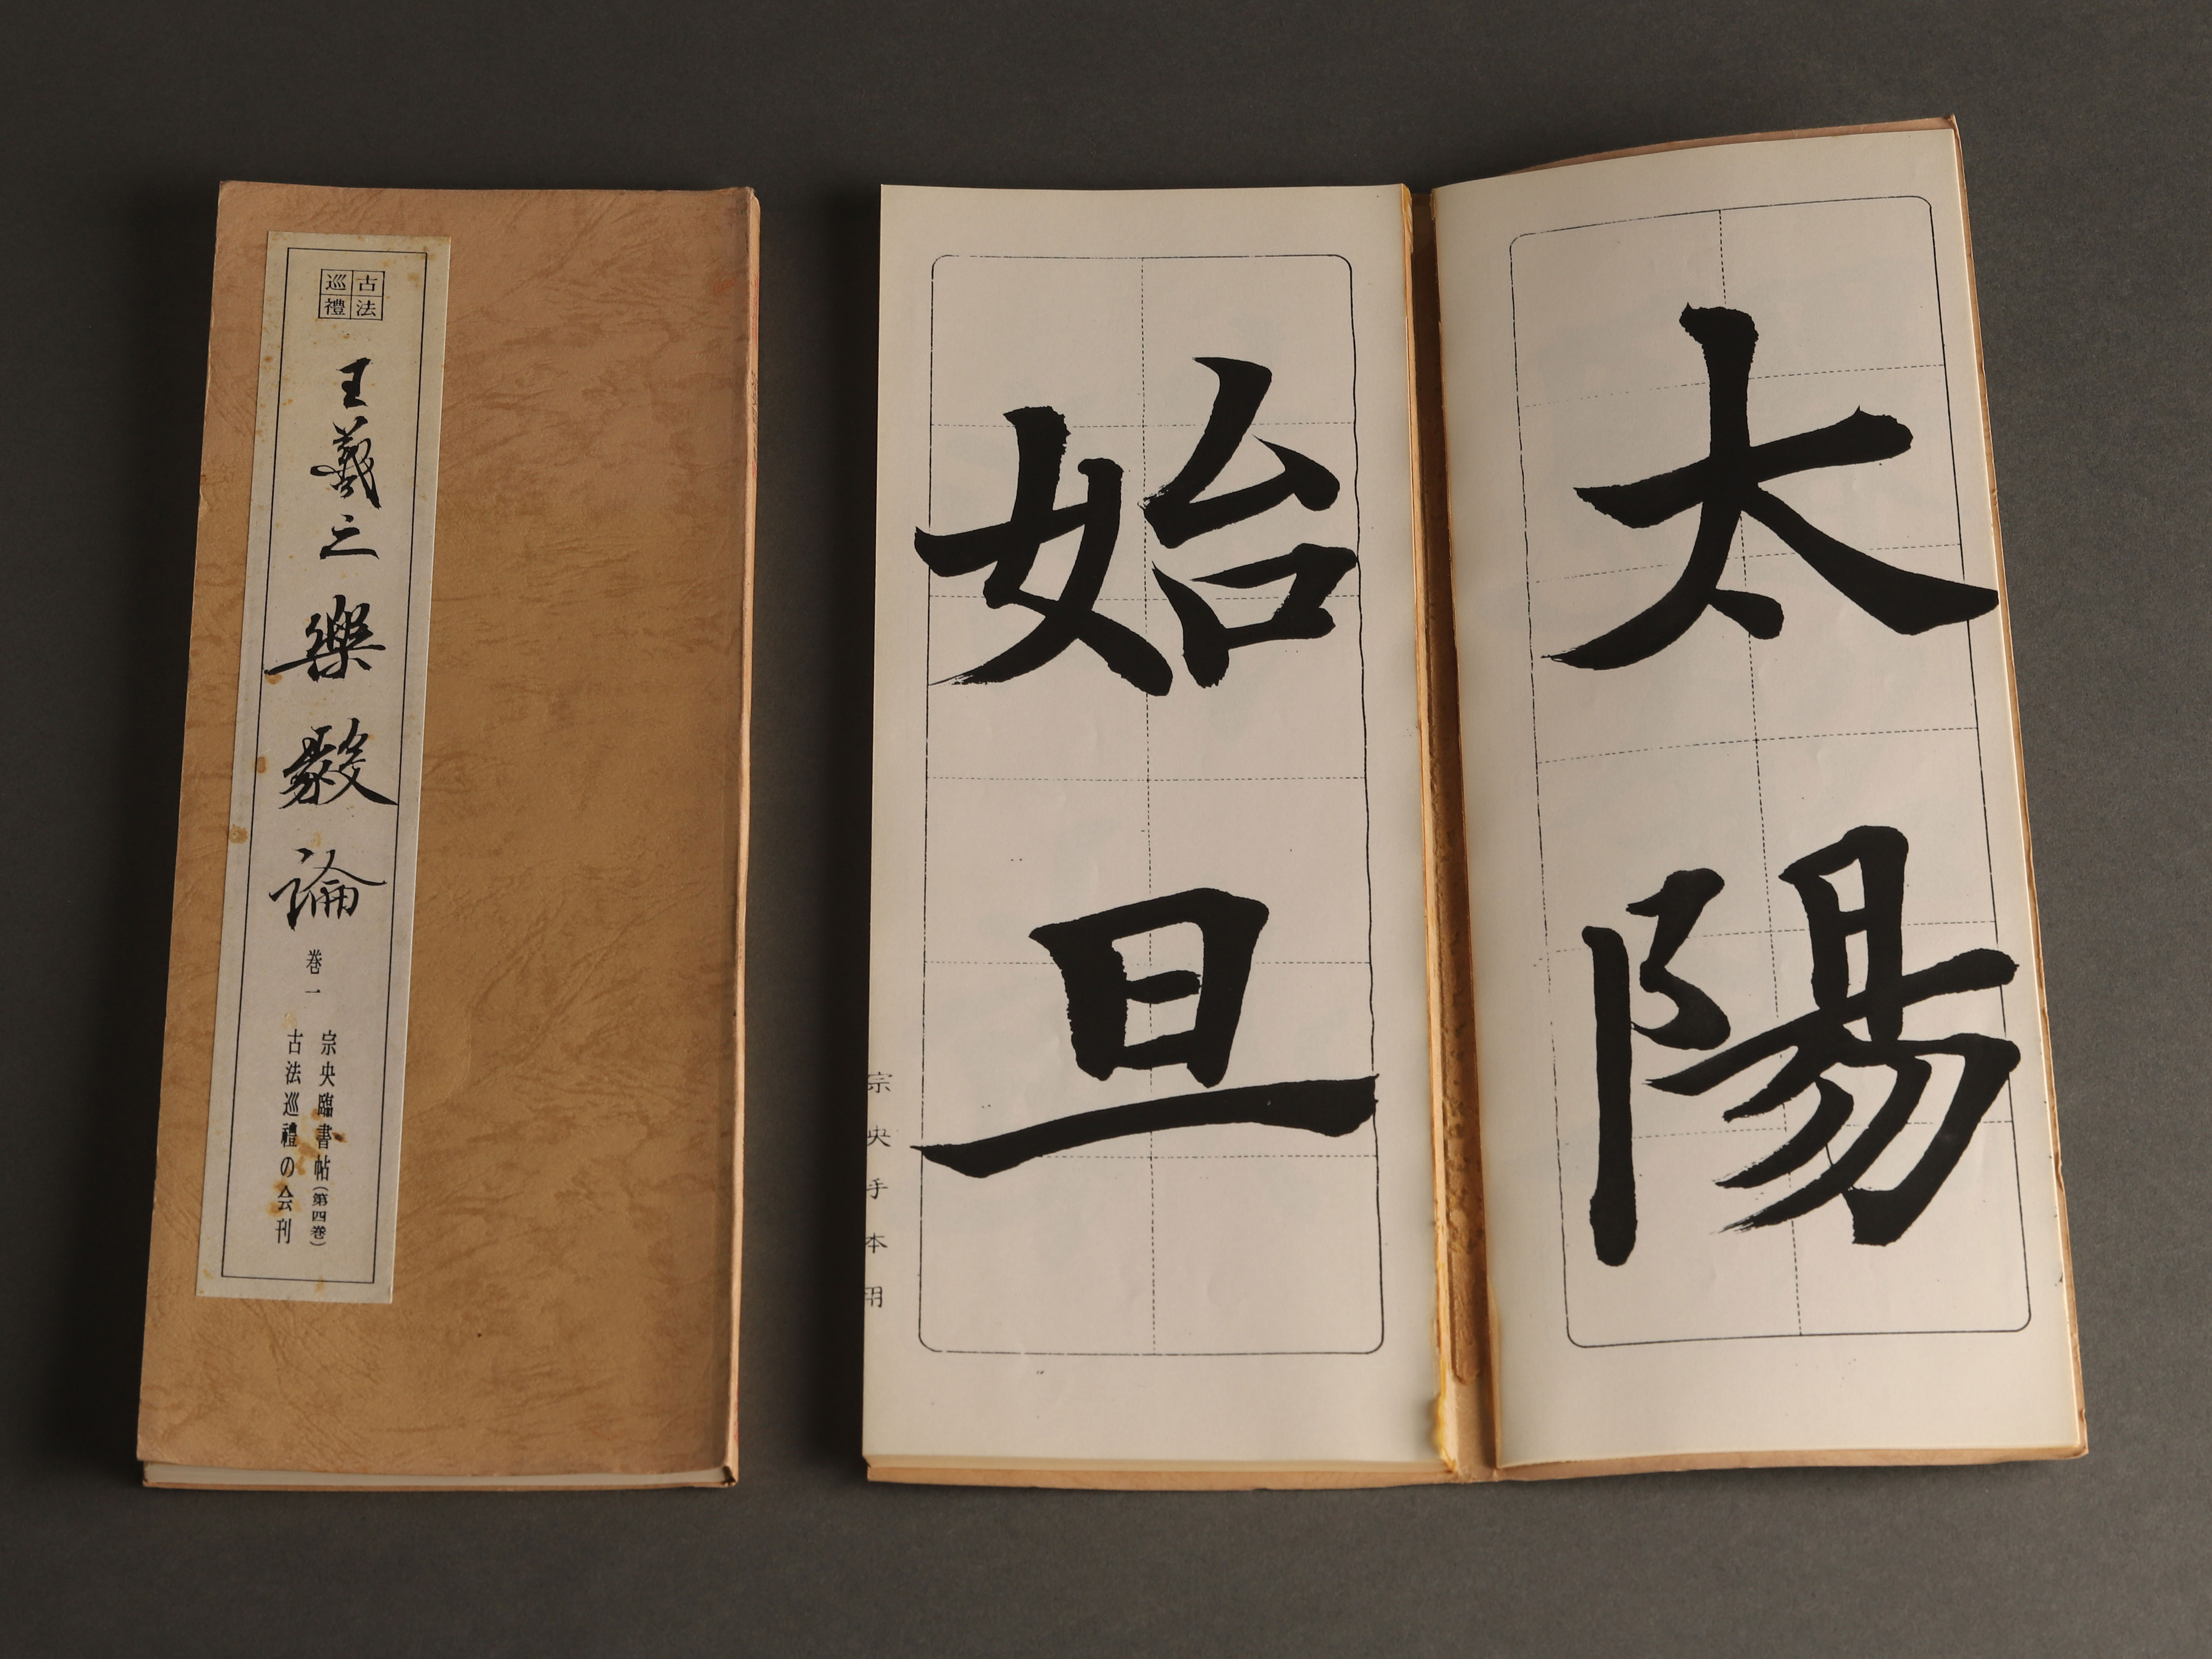 古法
巡禮
王羲之樂毅論
巻一
宗央臨書帖(第四巻)
古法巡禮の会刊
太陽
始旦
宗央手本用